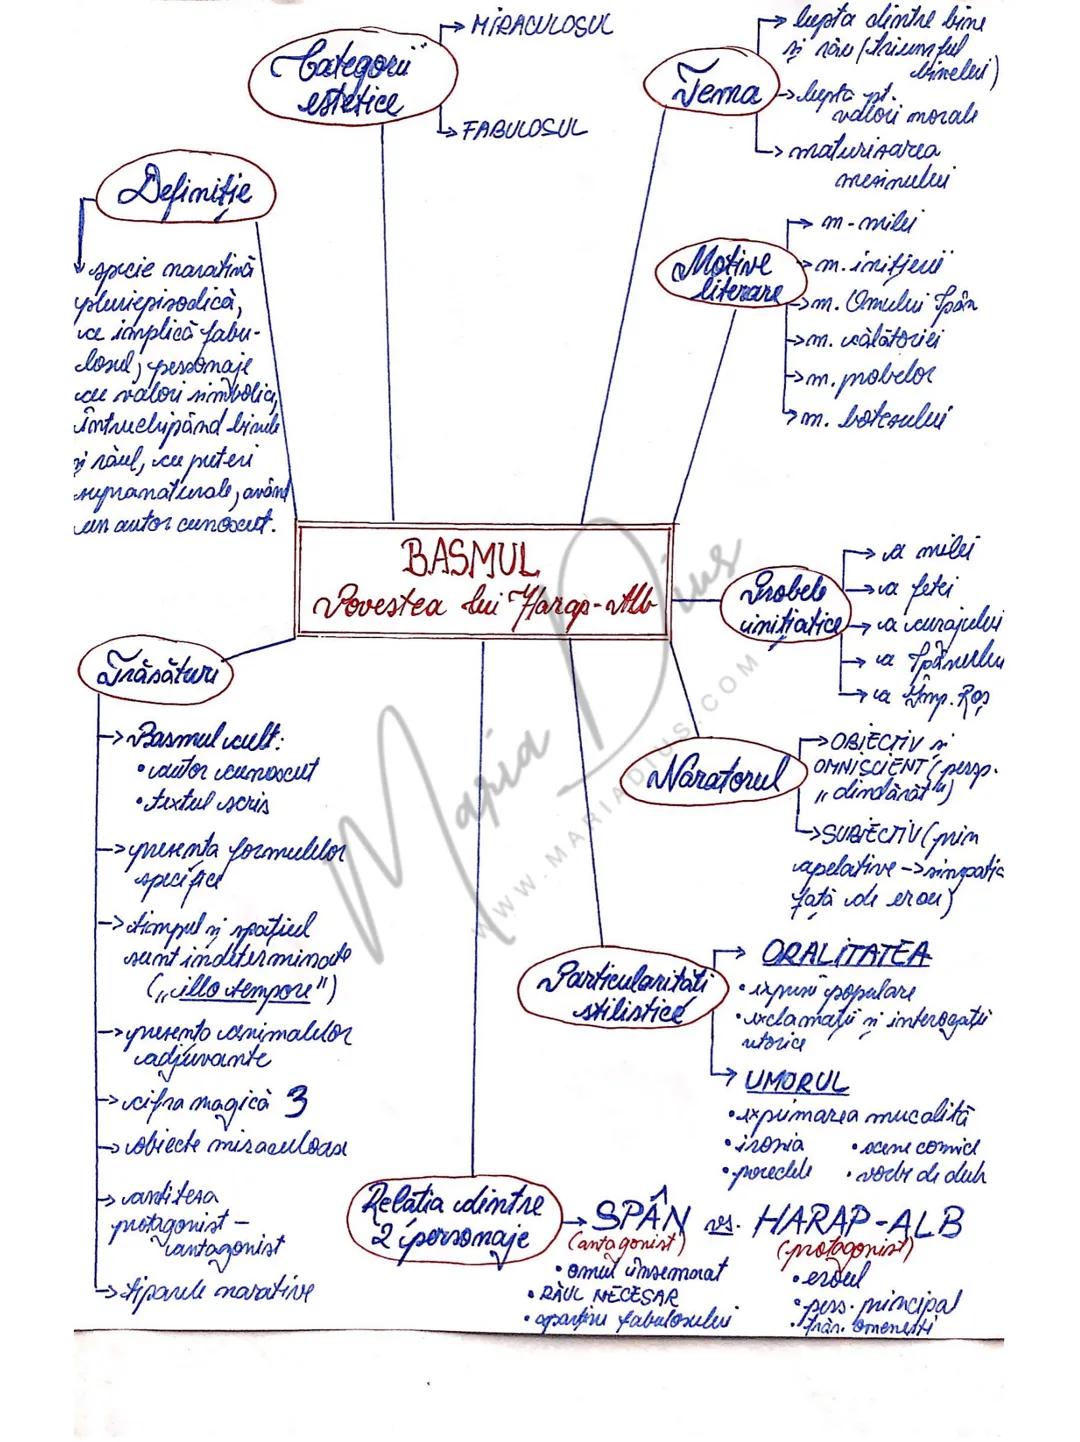 Categorii
estetice
MIRACULOSUL
FABULOSUL
Tema
lupta dintre bine
și rău (triumful
binelui)
lupta pt.
valori morale
maturizarea
mezinului
Definiție
specie narativă
pluriepisodică,
ce implică fabu-
losul, personaje
cu valori simbolice,
întruchipând binele
și răul, cu puteri
supranaturale, având
un autor cunoscut.
Motive
literare
m. milei
m. inițierii
m. Omului Spân
m. călătoriei
m. probelor
m. botezului
BASMUL
Povestea lui Harap-Alb
Probele
inițiatice
a milei
a fetei
a curajului
a Spânului
a Împ. Roș
Naratorul
OBIECTIV și
OMNISCIENT (persp.
„dindărăt")
SUBIECTIV (prin
apelative -> simpatia
față de erou)
Trăsături
Basmul cult:
• autor cunoscut
• textul scris
prezența formulelor
specifice
timpul și spațiul
sunt indeterminate
(„illo tempore")
prezența animalelor
adjuvante
cifra magică 3
obiecte miraculoase
antiteza
protagonist -
antagonist
tiparele narative
Particularități
stilistice
ORALITATEA
• expresii populare
• exclamații și interogații
retorice
UMORUL
• exprimarea mucalită
• ironia • scene comice
• porecle • vorbe de duh
Relația dintre
2 personaje
SPÂN vs. HARAP-ALB
(antagonist) (protagonist)
• omul însemnat • eroul
• RĂUL NECESAR • pers. principal
• aparține fabulosului • trăs. omenești
Maria Dius
WWW.MARIADIUS.COM